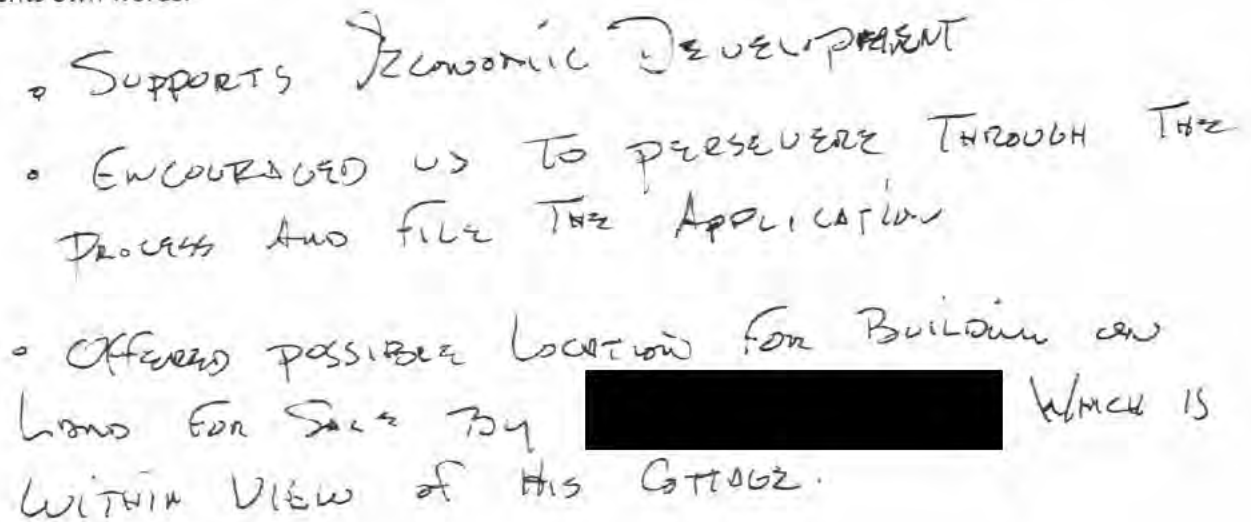 • Supports Economic Development
• Encouraged us to persevere through the
process and file the application
• Offered possible location for building on
land for sale by which is
within view of his cottage.